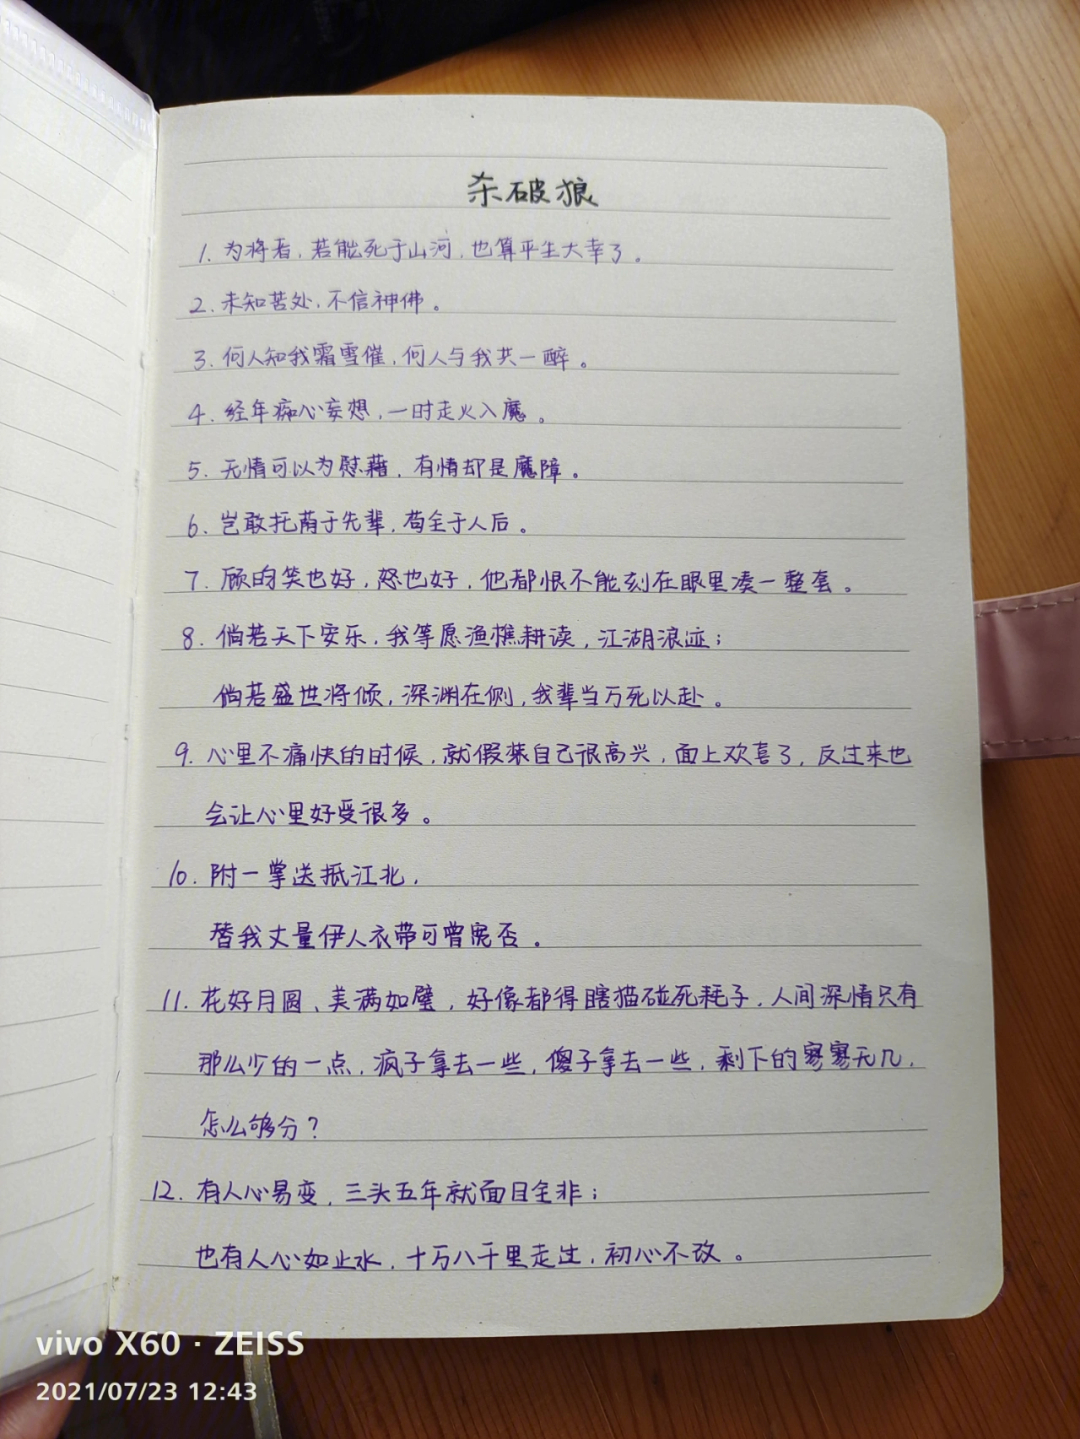 杀破狼
1. 为将者，若能死于山河，也算平生大幸了。
2. 未知苦处，不信神佛。
3. 何人知我霜雪催，何人与我共一醉。
4. 经年痴心妄想，一时走火入魔。
5. 无情可以为慰藉，有情却是魔障。
6. 岂敢托荫于先辈，苟全于人后。
7. 顾昀笑也好，怒也好，他都恨不能刻在眼里凑一整套。
8. 倘若天下安乐，我等愿渔樵耕读，江湖浪迹；
倘若盛世将倾，深渊在侧，我辈当万死以赴。
9. 心里不痛快的时候，就假装自己很高兴，面上欢喜了，反过来也
会让心里好受很多。
10. 附一掌送抵江北，
替我丈量伊人衣带可曾宽否。
11. 花好月圆、美满如璧，好像都得瞎猫碰死耗子，人间深情只有
那么少的一点，疯子拿去一些，傻子拿去一些，剩下的寥寥无几，
怎么够分？
12. 有人心易变，三头五年就面目全非；
也有人心如止水，十万八千里走过，初心不改。
vivo X60 · ZEISS
2021/07/23 12:43